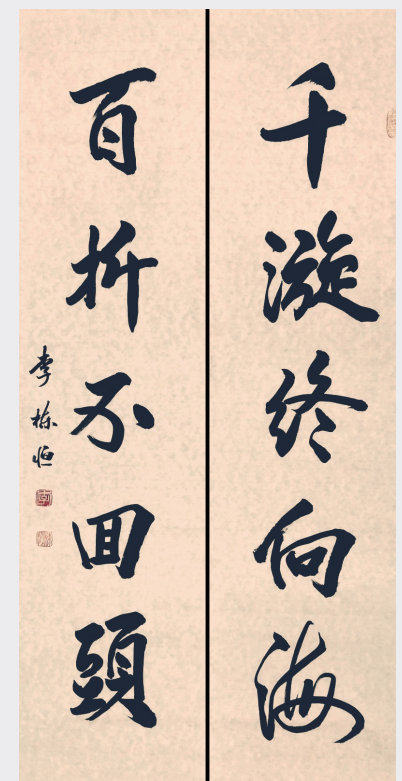 千漩终向海
百折不回頭
李栋恒